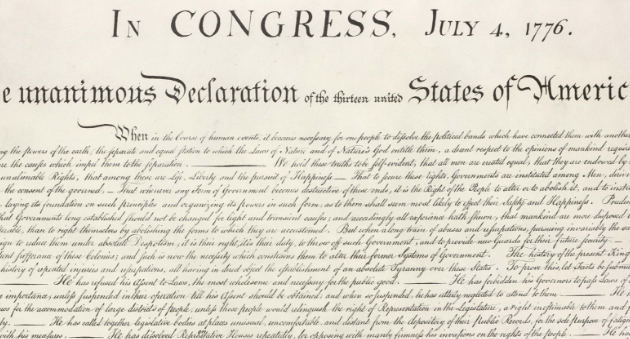 IN CONGRESS, JULY 4, 1776.
e unanimous Declaration of the thirteen united States of Americ
When in the Course of human events, it becomes necessary for one people to dissolve the political bands which have connected them with anothe
the powers of the earth, the separate and equal station to which the Laws of Nature and of Nature's God entitle them, a decent respect to the opinions of mankind requir
the causes which impel them to the separation. — We hold these truths to be self-evident, that all men are created equal, that they are endowed by
unalienable Rights, that among these are Life, Liberty and the pursuit of Happiness. — That to secure these rights, Governments are instituted among Men, deriv
the consent of the governed, — That whenever any Form of Government becomes destructive of these ends, it is the Right of the People to alter or to abolish it, and to instit
laying its foundation on such principles and organizing its powers in such form, as to them shall seem most likely to effect their Safety and Happiness. Pruden
that Governments long established should not be changed for light and transient causes; and accordingly all experience hath shewn, that mankind are more disposed t
than to right themselves by abolishing the forms to which they are accustomed. But when a long train of abuses and usurpations, pursuing invariably the sam
to reduce them under absolute Despotism, it is their right, it is their duty, to throw off such Government, and to provide new Guards for their future security. —
sufferance of these Colonies; and such is now the necessity which constrains them to alter their former Systems of Government. The history of the present King
history of repeated injuries and usurpations, all having in direct object the establishment of an absolute Tyranny over these States. To prove this, let Facts be submi
He has refused his Assent to Laws, the most wholesome and necessary for the public good. He has forbidden his Governors to pass La
importance, unless suspended in their operation till his Assent should be obtained; and when so suspended, he has utterly neglected to attend to them. He
for the accommodation of large districts of people, unless those people would relinquish the right of Representation in the Legislature, a right inestimable to them and
He has called together legislative bodies at places unusual, uncomfortable, and distant from the depository of their public Records, for the sole purpose of fatigu
with his measures. He has dissolved Representative Houses repeatedly, for opposing with manly firmness his invasions on the rights of the people. He has